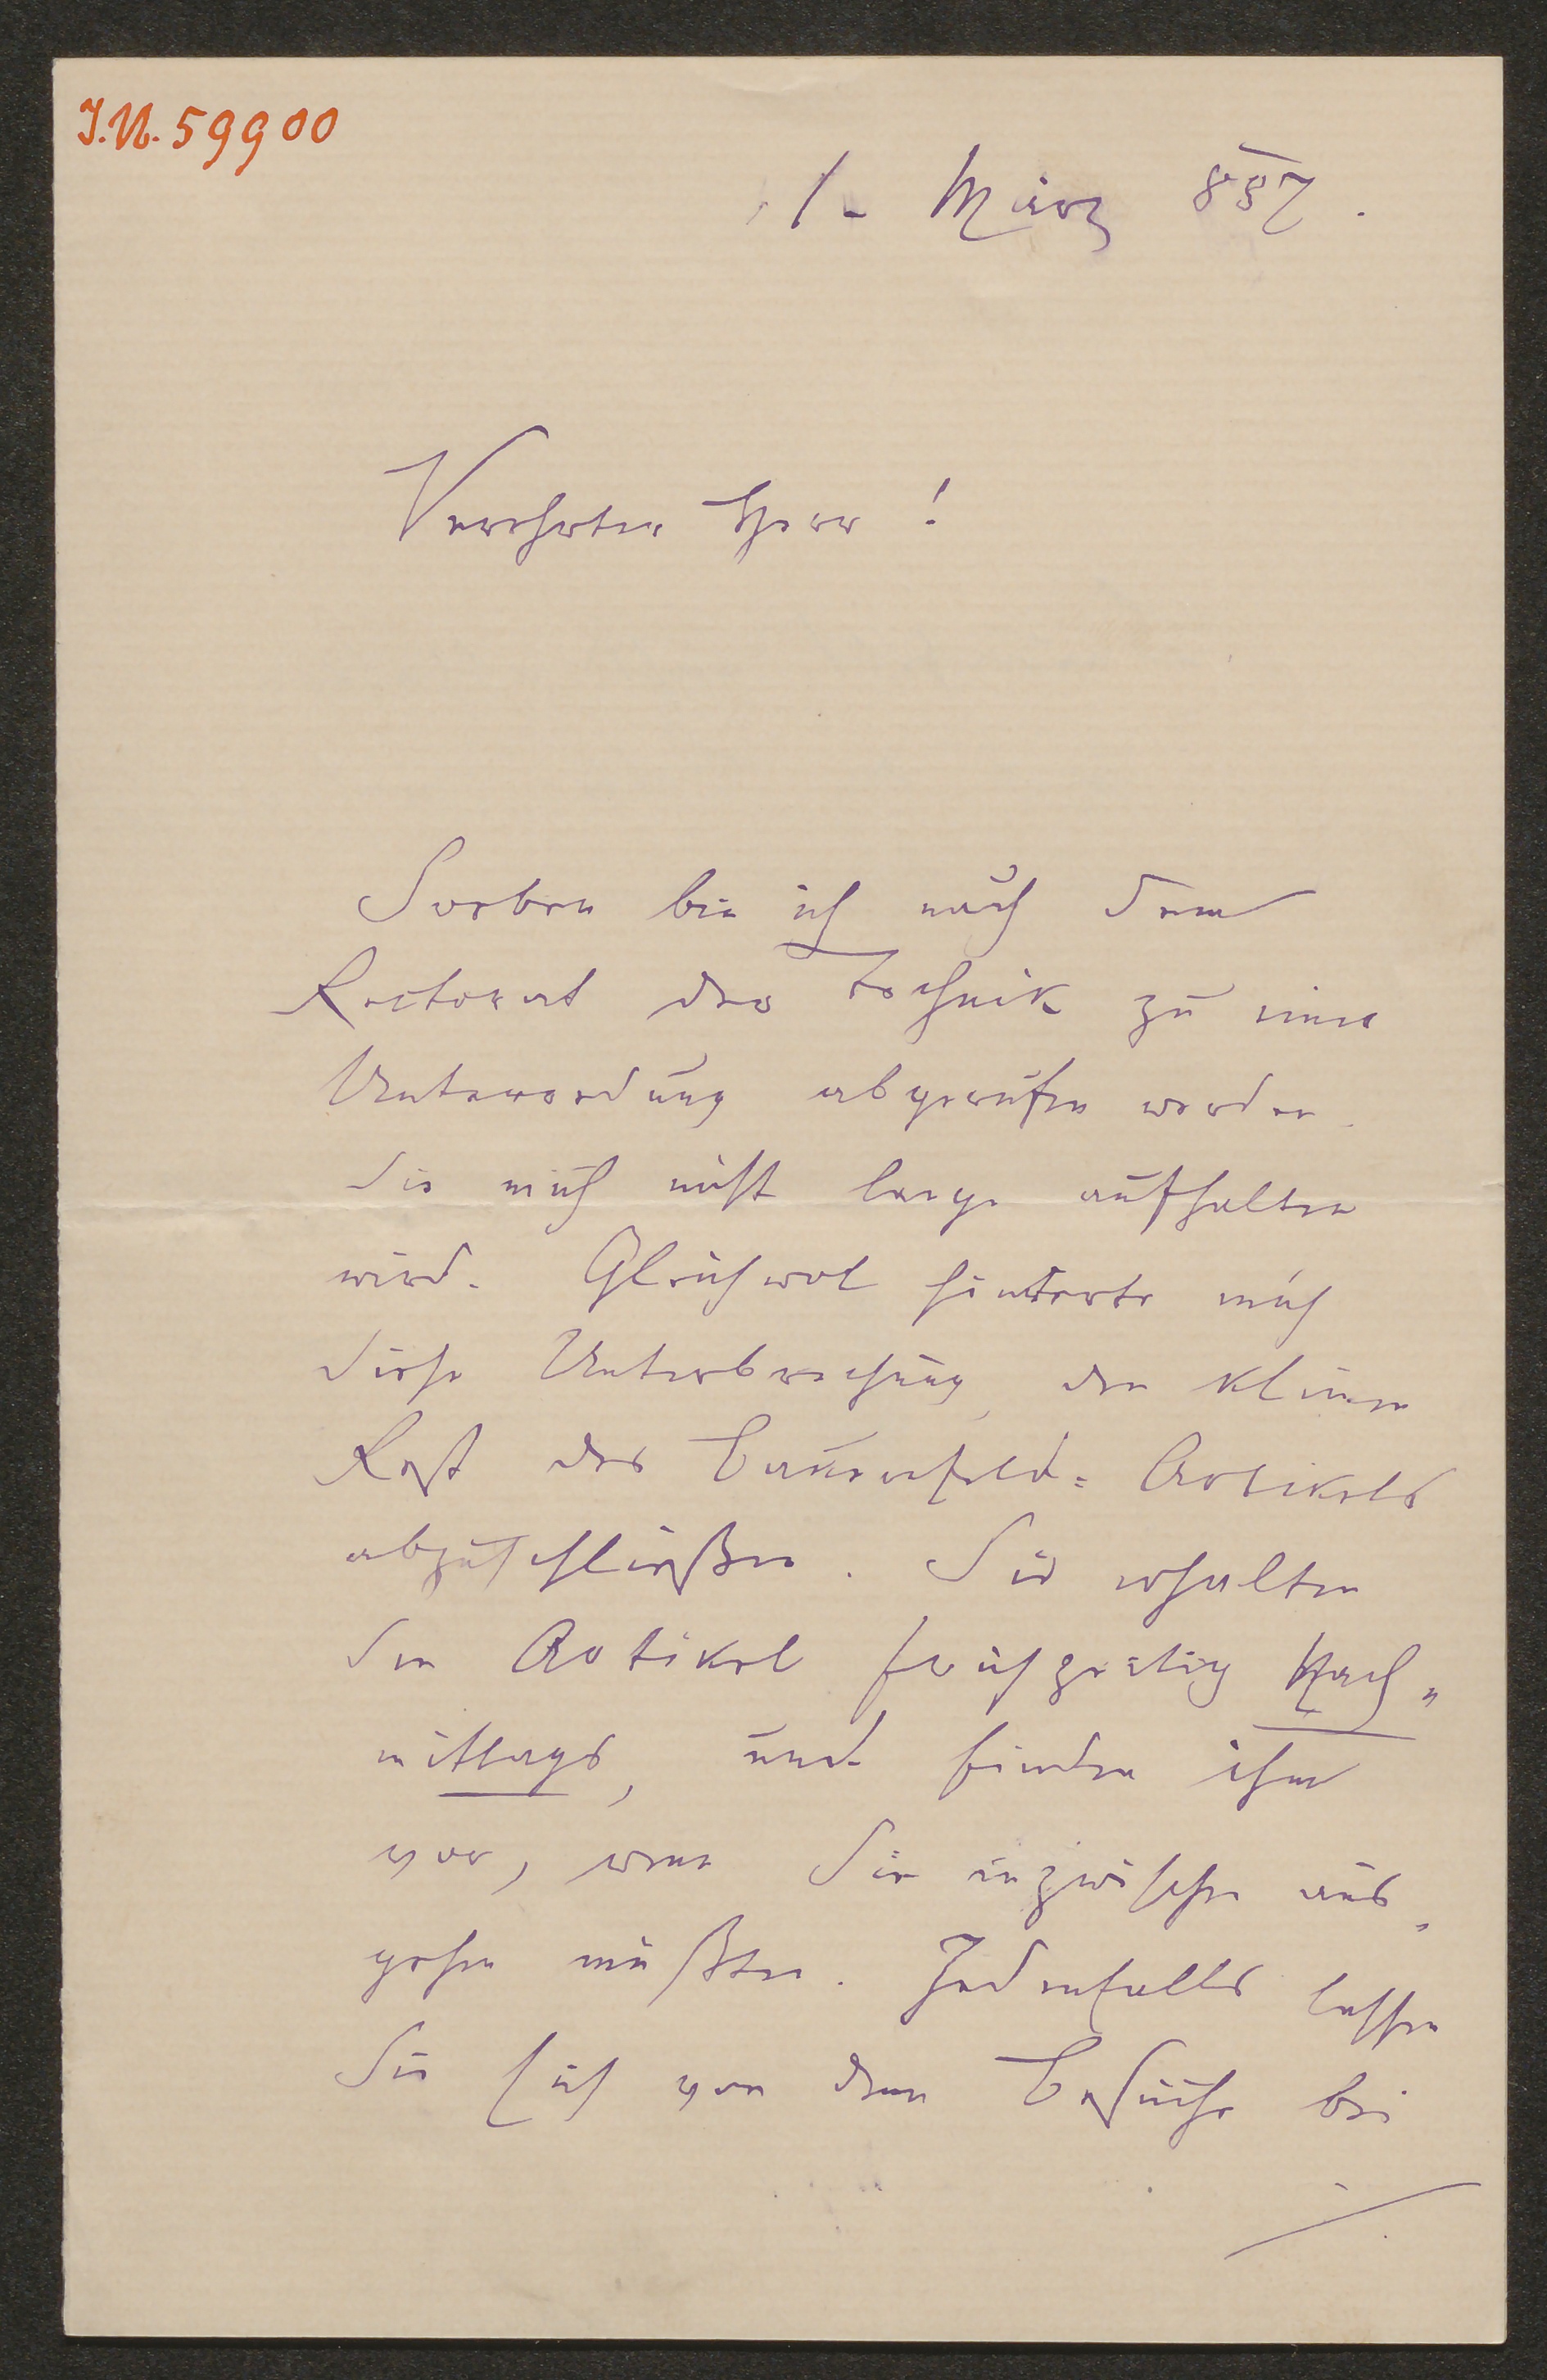 J.N. 59900
1. März 887.
Verehrter Herr!
Soeben bin ich nach dem
Rectorat der Technik zu einer
Unterredung abgerufen worden
die mich nicht lange aufhalten
wird. Gleichwol hinderte mich
diese Unterbrechung, den kleinen
Rest des Bauernfeld-Artikels
abzuschließen. Sie erhalten
den Artikel frühzeitig Nach-
mittags, und finden ihn
vor, wenn Sie inzwischen aus-
gehen müßten. Jedenfalls lassen
Sie sich von dem Besuche bei